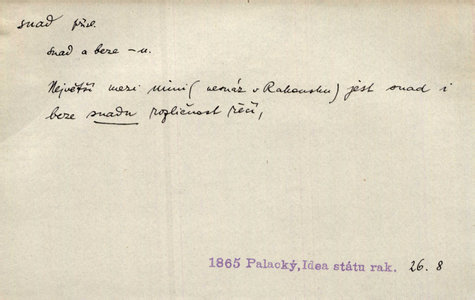 snad přísl.
snad a beze -u.
Největší mezi nimi (nesnáz v Rakousku) jest snad i
beze snadu rozličnost řečí,
1865 Palacký, Idea státu rak. 26. 8